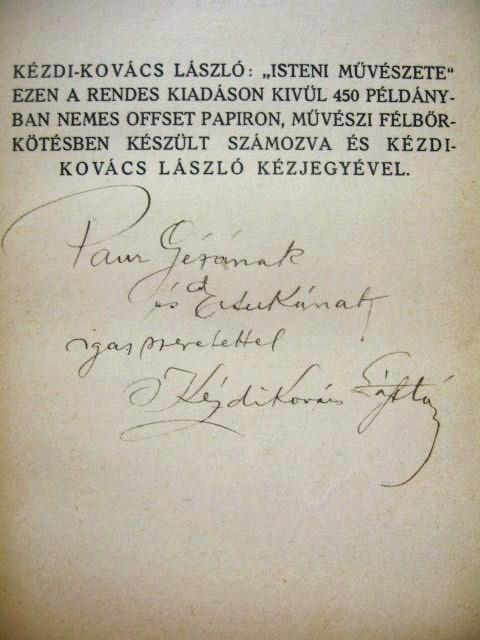 KÉZDI-KOVÁCS LÁSZLÓ: „ISTENI MŰVÉSZETE“
EZEN A RENDES KIADÁSON KIVÜL 450 PÉLDÁNY-
BAN NEMES OFFSET PAPIRON, MŰVÉSZI FÉLBŐR-
KÖTÉSBEN KÉSZÜLT SZÁMOZVA ÉS KÉZDI-
KOVÁCS LÁSZLÓ KÉZJEGYÉVEL.
Paur Gézának
és
igaz szeretettel
Kézdi Kovács László